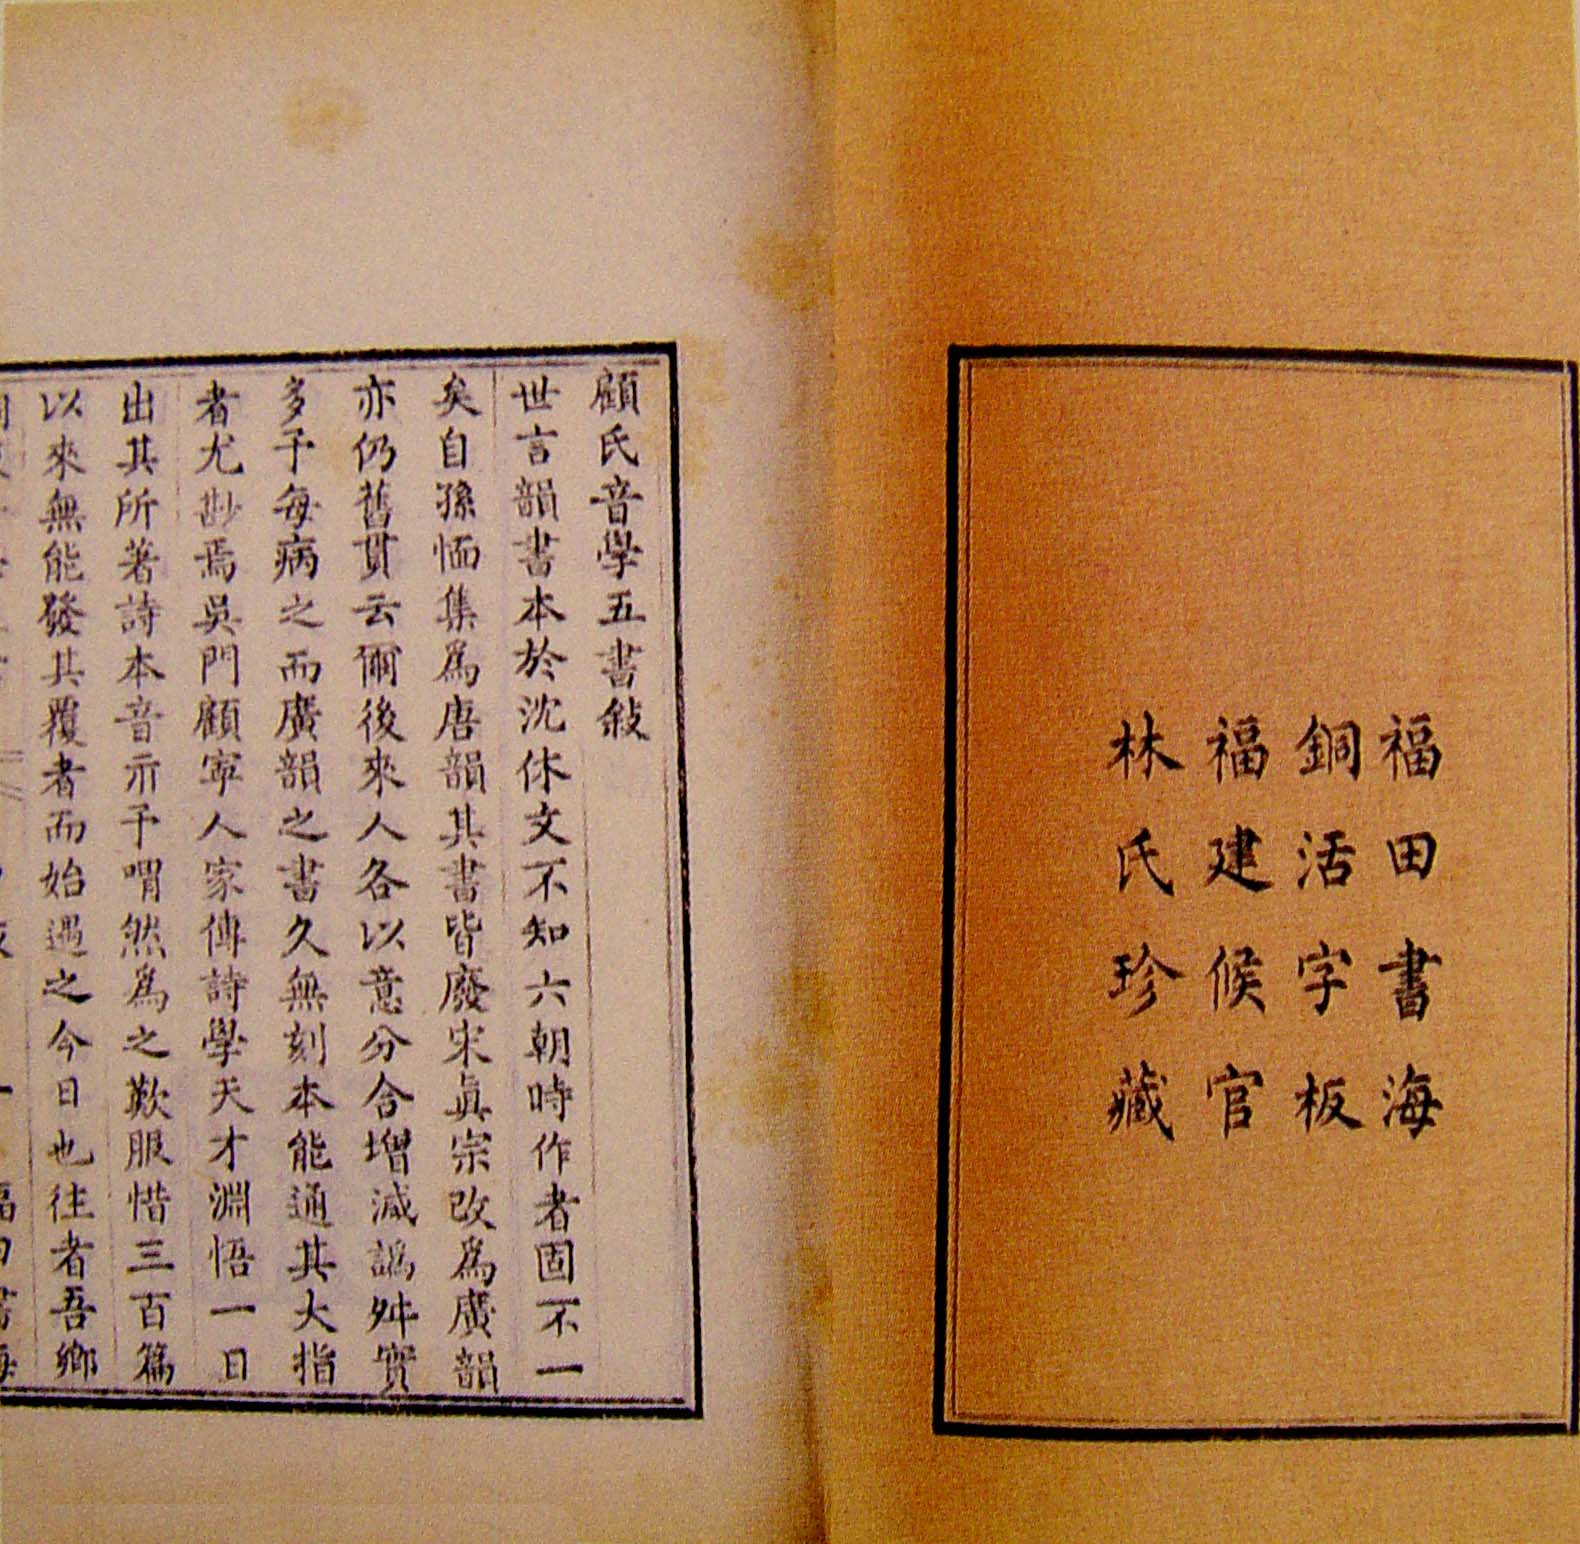 福田書海
銅活字板
福建候官
林氏珍藏
顧氏音學五書敍
世言韻書本於沈休文不知六朝時作者固不一
矣自孫愐集爲唐韻其書皆廢宋眞宗改爲廣韻
亦仍舊貫云爾後來人各以意分合增減譌舛實
多予每病之而廣韻之書久無刻本能通其大指
者尤尠焉吳門顧寧人家傳詩學天才淵悟一日
出其所著詩本音示予喟然爲之歎服惜三百篇
以來無能發其覆者而始遇之今日也往者吾鄉
福田書海